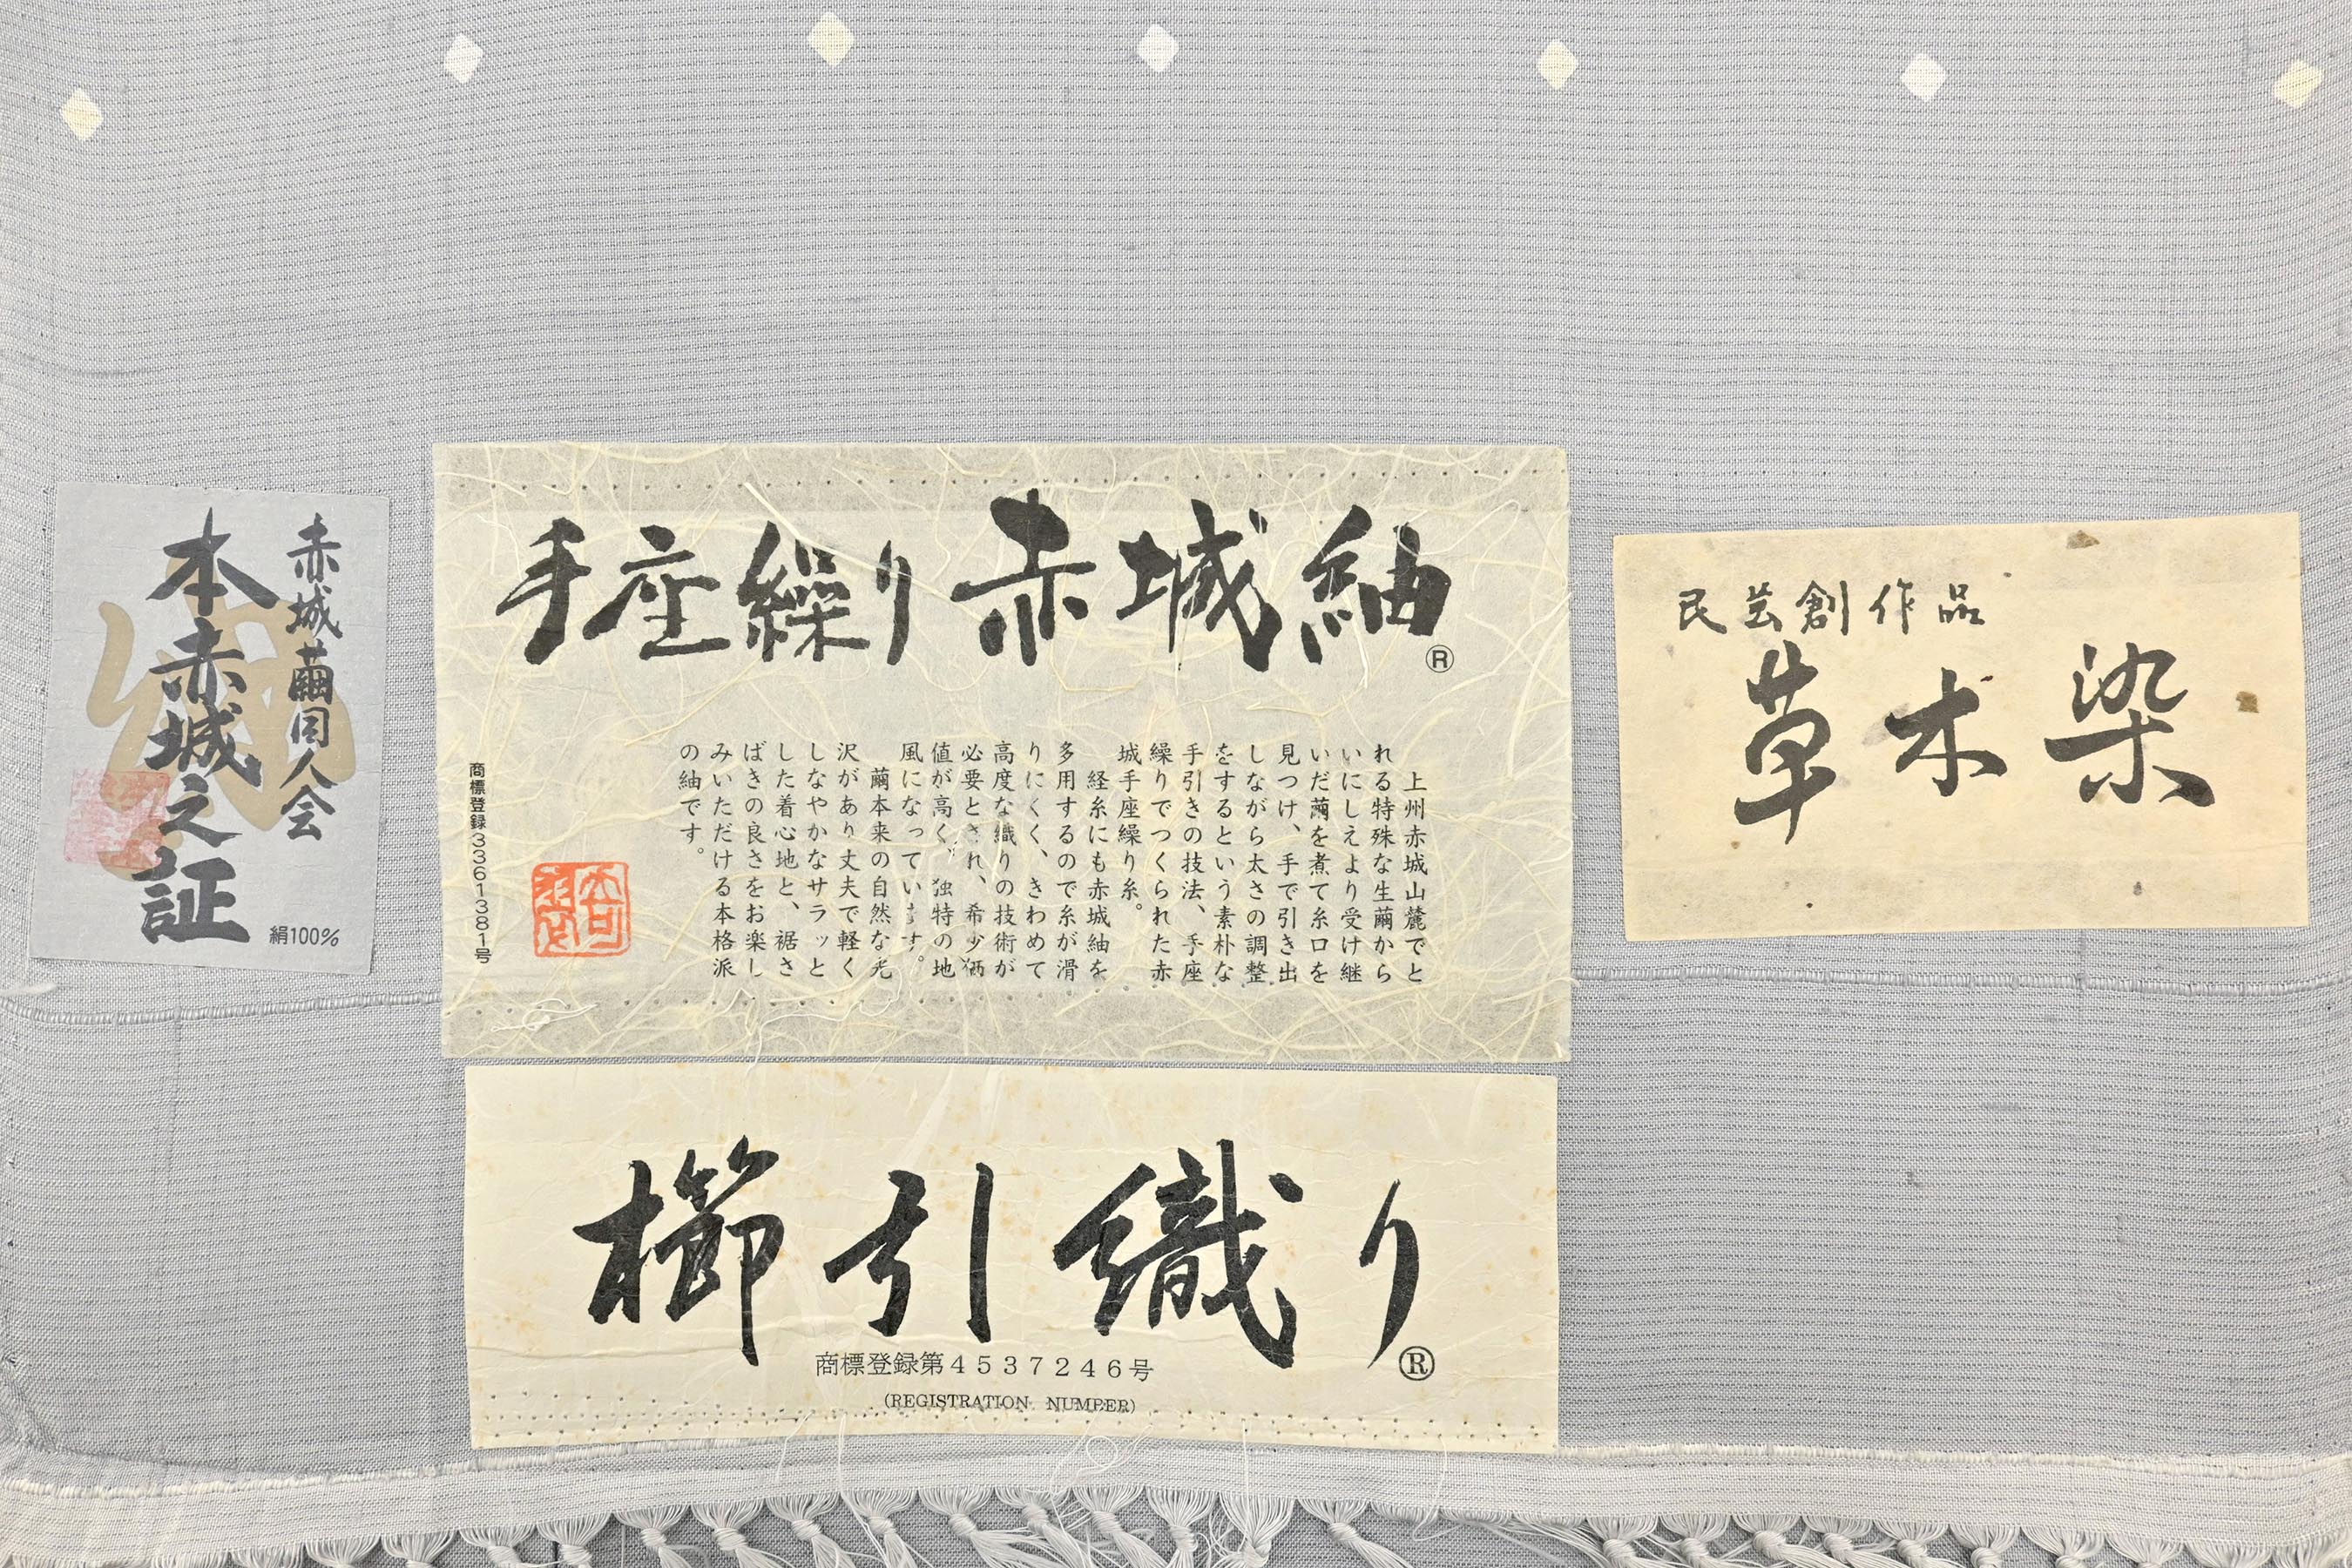 赤城繭同人会
本赤城之証
絹100%
手座繰り赤城紬
®
上州赤城山麓でと
れる特殊な生繭から
いにしえより受け継
いだ繭を煮て糸口を
見つけ、手で引き出
しながら太さの調整
をするという素朴な
手引きの技法、手座
繰りでつくられた赤
城手座繰り糸。
経糸にも赤城紬を
多用するので糸が滑
りにくく、きわめて
高度な織りの技術が
必要とされ、希少価
値が高く、独特の地
風になっています。
繭本来の自然な光
沢があり丈夫で軽く
しなやかなサラッと
した着心地と、裾さ
ばきの良さをお楽し
みいただける本格派
の紬です。
商標登録3361381号
民芸創作品
草木染
櫛引織り
®
商標登録第4537246号
(REGISTRATION NUMBER)